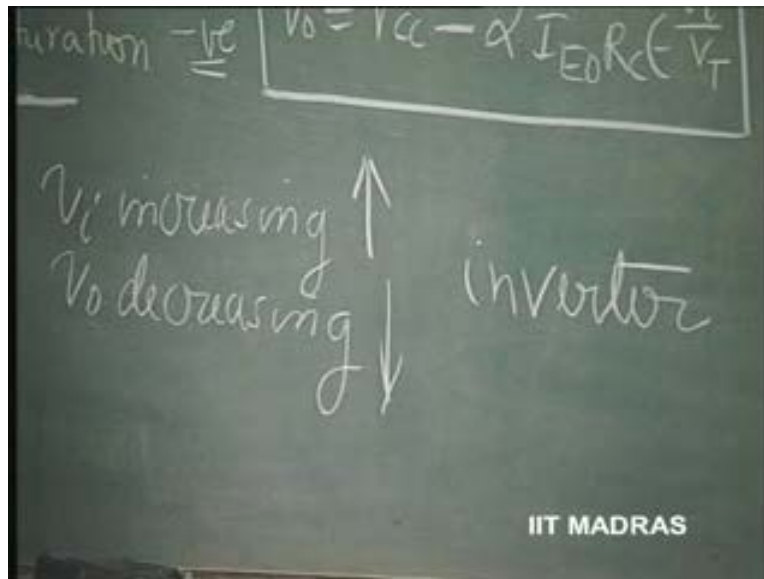 turation -ve
V₀ = Vcc - α I_E0 R_C (- V_i/V_T
V_i increasing ↑
V₀ decreasing ↓
invertor
IIT MADRAS